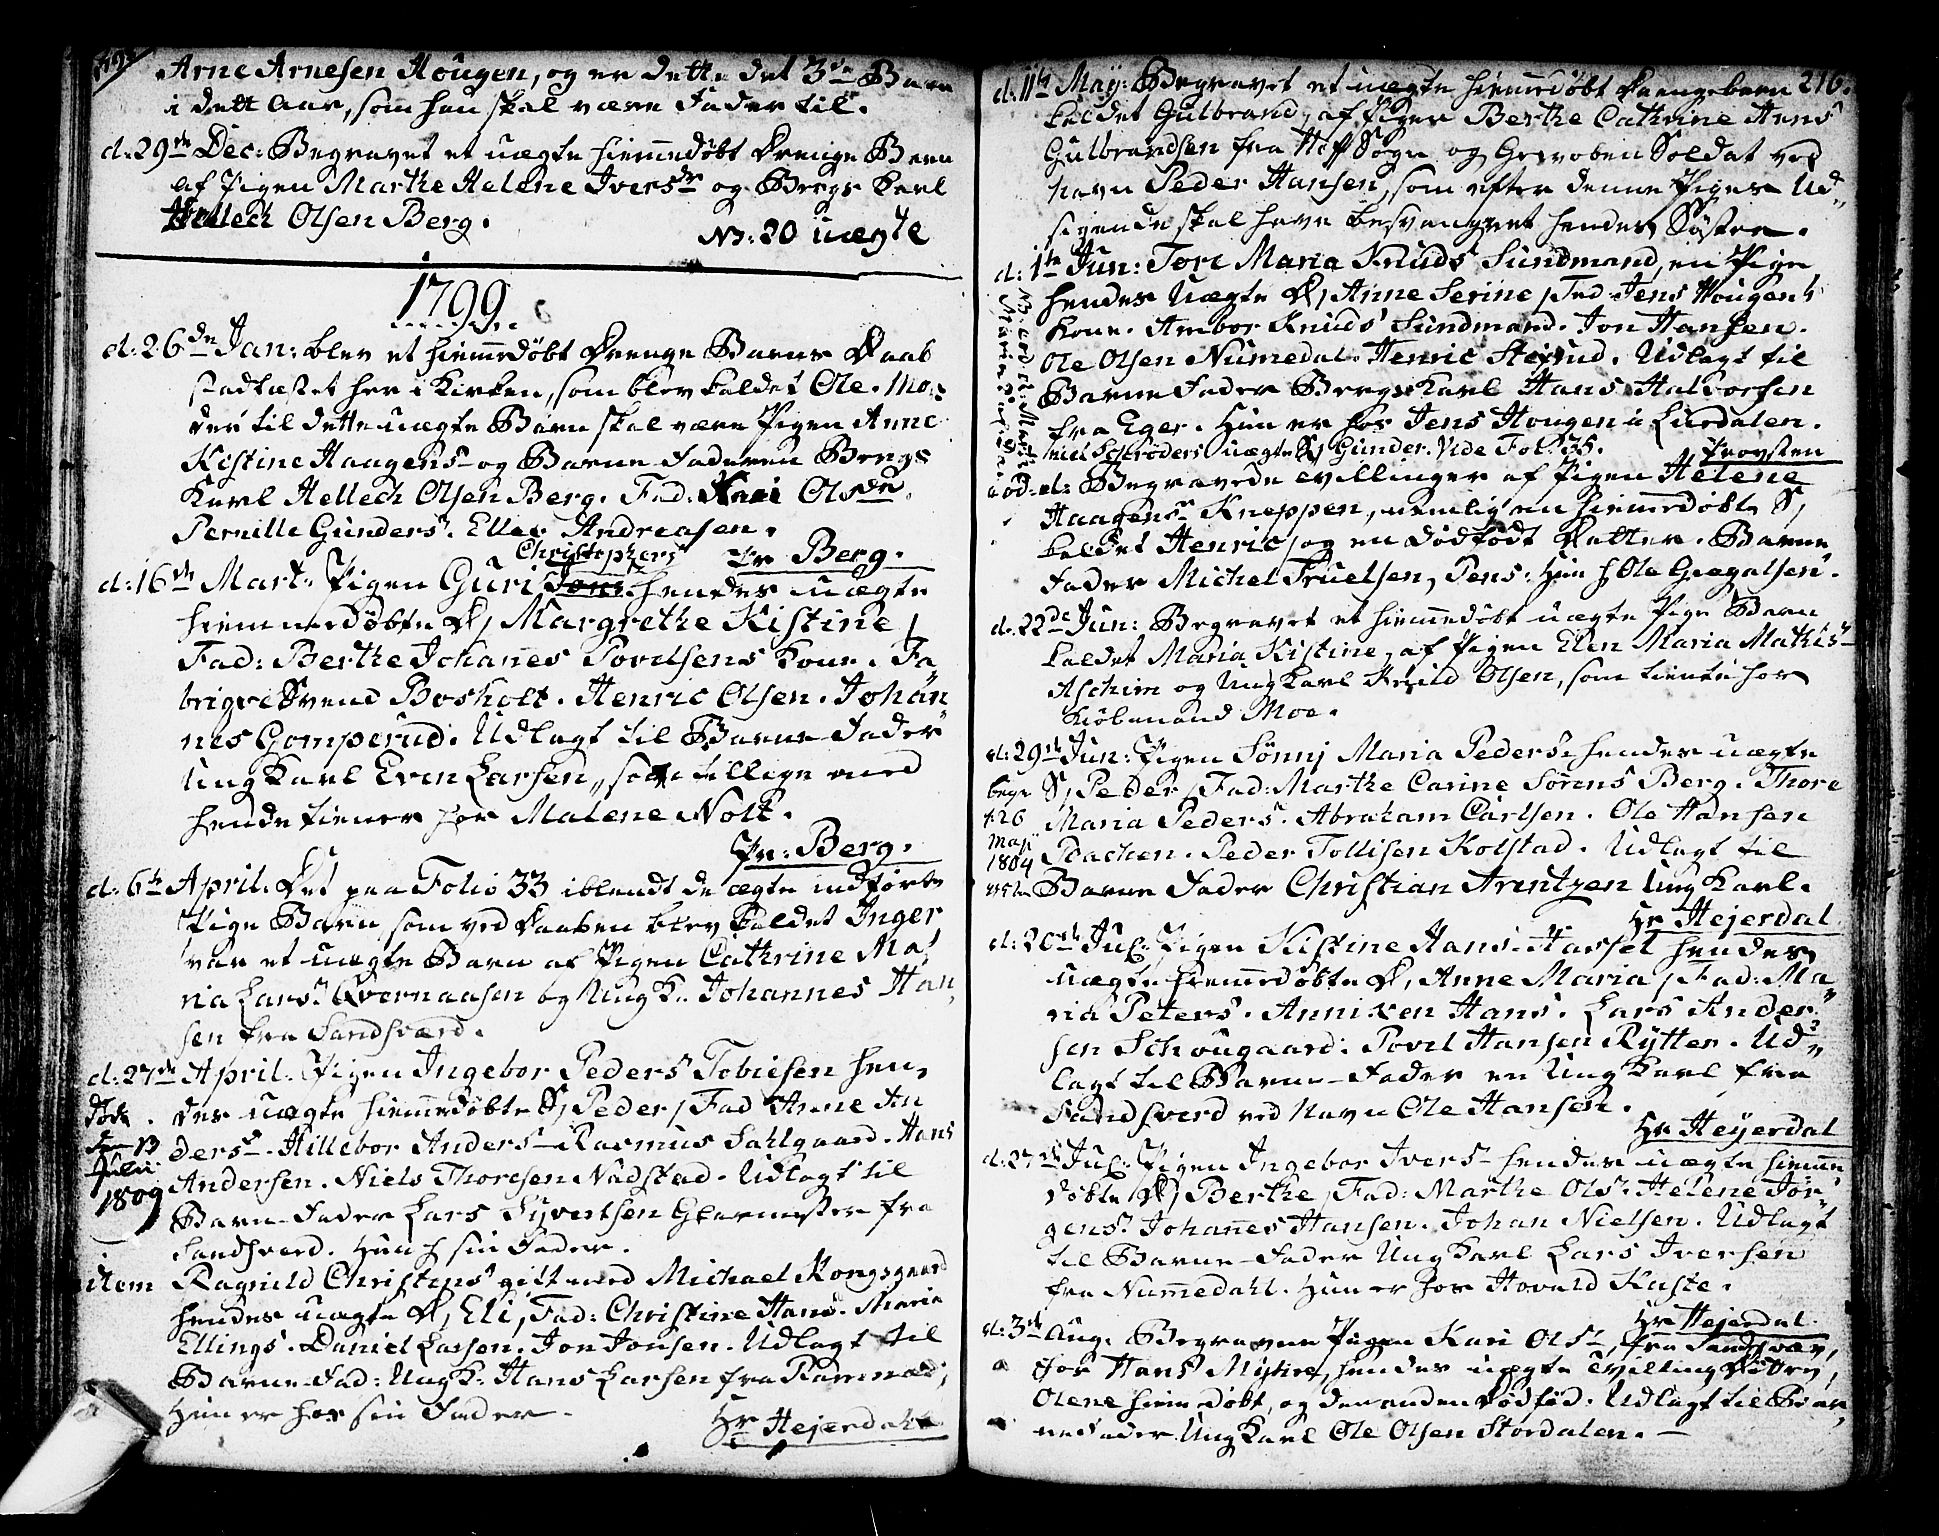 Arne Arnesen Hougen, og er dette det 3de Barn
i dett Aar, som han skal være Fader til.
d. 29de Dec: Begravet et uægte hiemmedøbt Drenge Barn
af Pigen Marthe Helene Iversdr og Bergs Karl
Hellech Olsen Berg.
No: 20 uægte
1799
d. 26de Jan: blev et hiemmedøbt Drenge Barns Daab
stadfæstet her i Kirken, som blev kaldet Ole. Mo-
der til dette uægte Barn skal være Pigen Anne
Kistine Haagens og Barne Faderen Bergs
Karl Hellech Olsen Berg. Fad: Kari Olsdr.
Pernille Gunders. Ellev Andreasen.
Hr Berg.
Christophers
d: 16de Mart. Pigen Guri Jons hendes uægte
hiemmedøbte D, Margrethe Kistine /
Fad: Berthe Johanes Povelsens Kone. Fa
brigve Svend Bosholt. Henric Olsen. Johan
nes Gomperud. Udlagt til Barne Fader
Ung Karl Even Larsen, som tillige med
hende tiener hos Malene Nolt.
Hr: Berg.
d: 6te April. Det paa Folio 33 iblandt de ægte indførte
Pige Barn, som ved Daaben blev kaldet Inger
var et uægte Barn af Pigen Cathrine Ma-
ria Lars. Qvernaasen og Ung K. Johannes Han
sen fra Sandsværd.
d: 27de April. Pigen Ingebor Peders Tobiesen hen,
des uægte hiemmedøbte S, Peder / Fad Anne An
ders. Hillebor Anders. Rasmus Sahlgaard. Hans
Andersen. Niels Thoresen Nadstad. Udlagt til
Barne Fader Lars Syvertsen Glarmester fra
Sandsverd. Hun h sin Fader.
døde
13
Julii
1809
item Ragnild Christens gift med Michael Kongsgaard
hendes uægte D, Eli, Fad: Christine Hans. Maria
Ellings. Daniel Lassen. Jon Jonsen. Udlagt til
Barne Fad: Ung K: Hans Larsen fra
Hun er hos sin Fader.
Hr Hejerdahl
216.
d. 11te May: Begravet et uægte hiemmedøbt Drengebarn
kaldet Gulbrand, af Pigen Berthe Cathrine Hens
Gulbrandsen fra Hoff Sogn og Gevoben Soldat ved
Navn Peder Hansen, som efter denne Piges Ud-
sigende skal have besvangret hendes Søster.
d. 1te Jun: Tore Maria Knuds Sundmand, en Pige
hendes Uægte D, Anne Serine / Fad: Jens Hougens
Kone. Ambor Knuds Sundmand. Jon Hansen.
Ole Olsen Numedal. Henric Stejrud. Udlagt til
Barne Fader Bergs Karl Hans Halvorsen
fra Eger. Hun er hos Jens Hougen i Lurdalen.
niel Schrøders uægte S, Gunder. Vide Fol: 35.
Provsten
eod: d: Begravede tvillinger af Pigen Helene
Haagens Kneppen, nemlig en hiemmedøbt S,
kaldet Henric, og en dødfødt Datter. Barne
Fader Michel Truelsen, Pens: Hun h Ole Gregatsen.
d. 22de Jun: Begravet et hiemmedøbt uægte Pige Barn
kaldet Maria Kistine, af Pigen Elen Maria Mathis
Aschim og Ung Karl Knud Olsen, som tiente hos
Kiøbmand Moe.
d. 29de Jun: Pigen Sønnj Maria Peders hendes uægte
S, Peder / Fad: Marthe Carine Sørens Berg. Thore
Maria Peders. Abraham Carlsen. Ole Hansen
Bachen. Peder Tollisen Kolstad. Udlagt til
Barne Fader Christian Arentzen Ung Karl.
begr
d. 26
Maji
1804
Hr Hejerdal
d: 20de Jul: Pigen Kistine Hans Hassel hendes
uægte hiemmedøbte D, Anne Maria / Fad: Ma
ria Peters. Anniken Hans. Lars Ander
sen Schougaard. Povel Hansen Rytter. Ud-
lagt til Barne Fader en Ung Karl fra
Sandsverd ved Navn Ole Hansen.
Hr Heyerdal
d. 27de Jul: Pigen Ingebor Ivers hendes uægte hiemme
døbte D, Berthe, Fad: Marthe Ols. Helene Jør-
gens. Johanes Hansen. Johan Nielsen. Udlagt
til Barne Fader Ung Karl Lars Iversen
fra Nummedahl. Hun er hos Hovald Kuste.
Hr Hejerdal.
d. 3de Aug. Begraven Pigen Kari Ols, fra Sandsvær,
hos Hans Myhre, hendes uægte tvilling Døtre,
Olene hiemmedøbt, og den anden dødfød. Udlagt til Bar-
ne Fader Ung Karl Ole Olsen Stordalen.